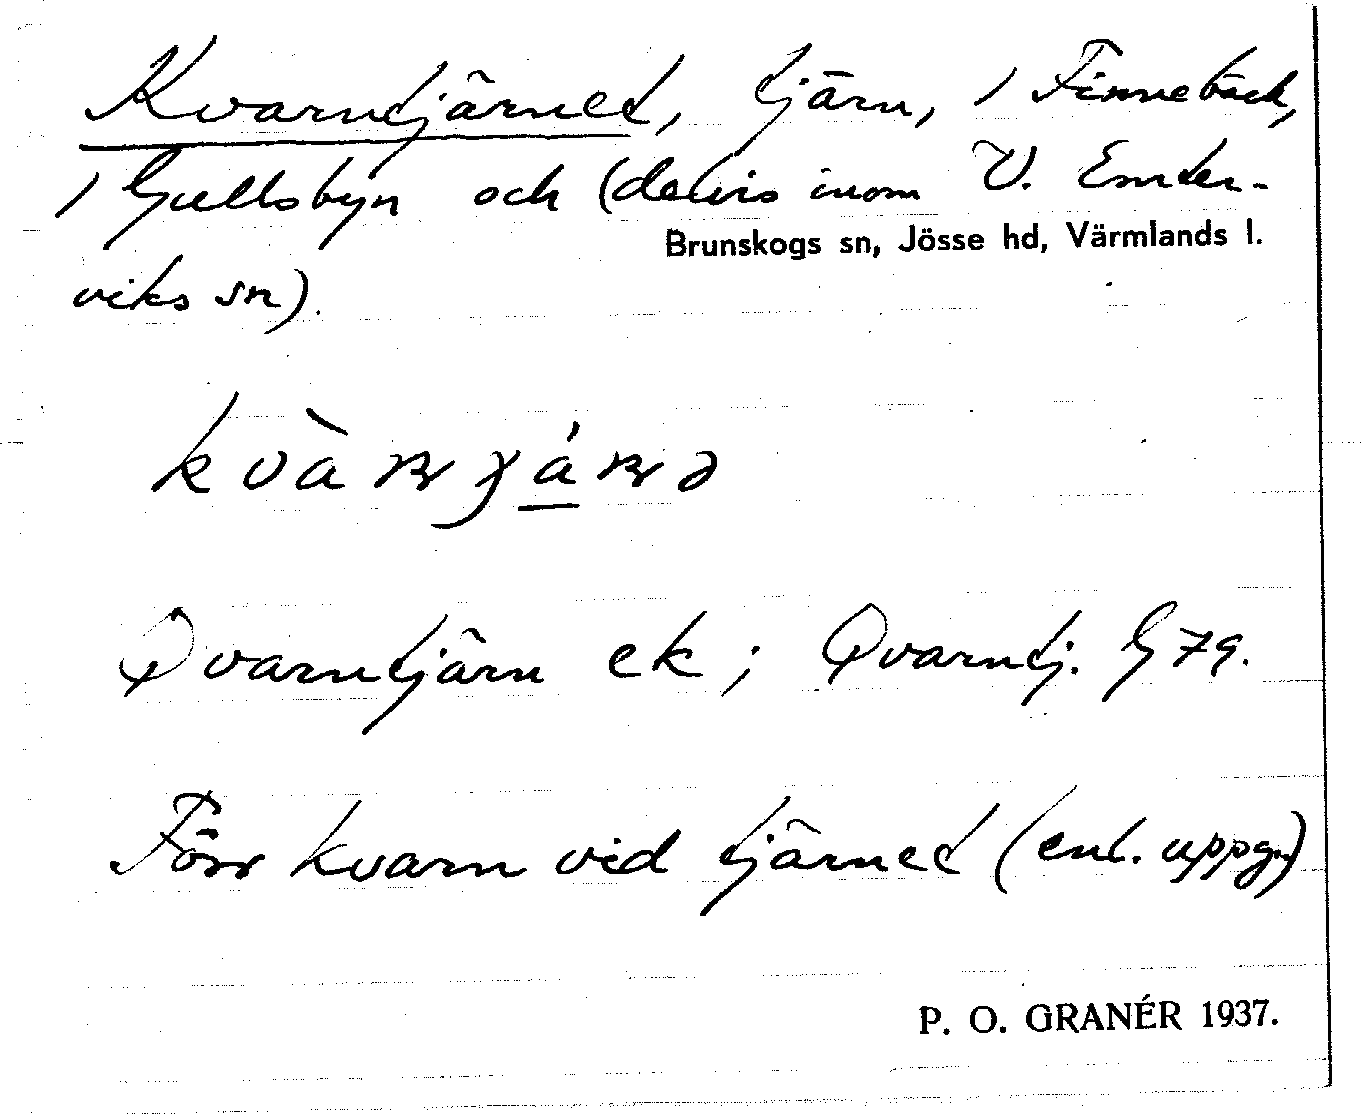 Kvarntjärnet, tjärn, / Finnebäck,
/ Gullsbyn och (delvis inom V. Emter-
Brunskogs sn, Jösse hd, Värmlands l.
viks sn).
Qvarntjärn ek; Qvarntj. G 79.
Förr kvarn vid tjärnet (enl. uppg.)
P. O. GRANÉR 1937.